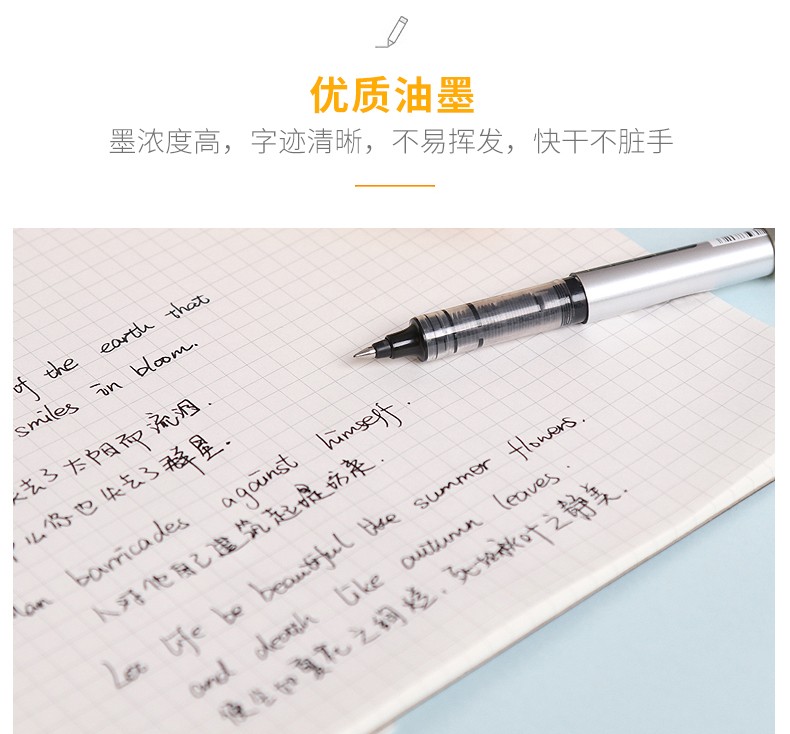 优质油墨
墨浓度高，字迹清晰，不易挥发，快干不脏手
of the earth that
smiles in bloom.
去了太阳而流泪.
么你也失去了群星.
barricades against himself.
人对他自己建筑起堤防来.
Let life be beautiful like summer flowers.
and death like autumn leaves.
使生如夏花之绚烂，死如秋叶之静美.